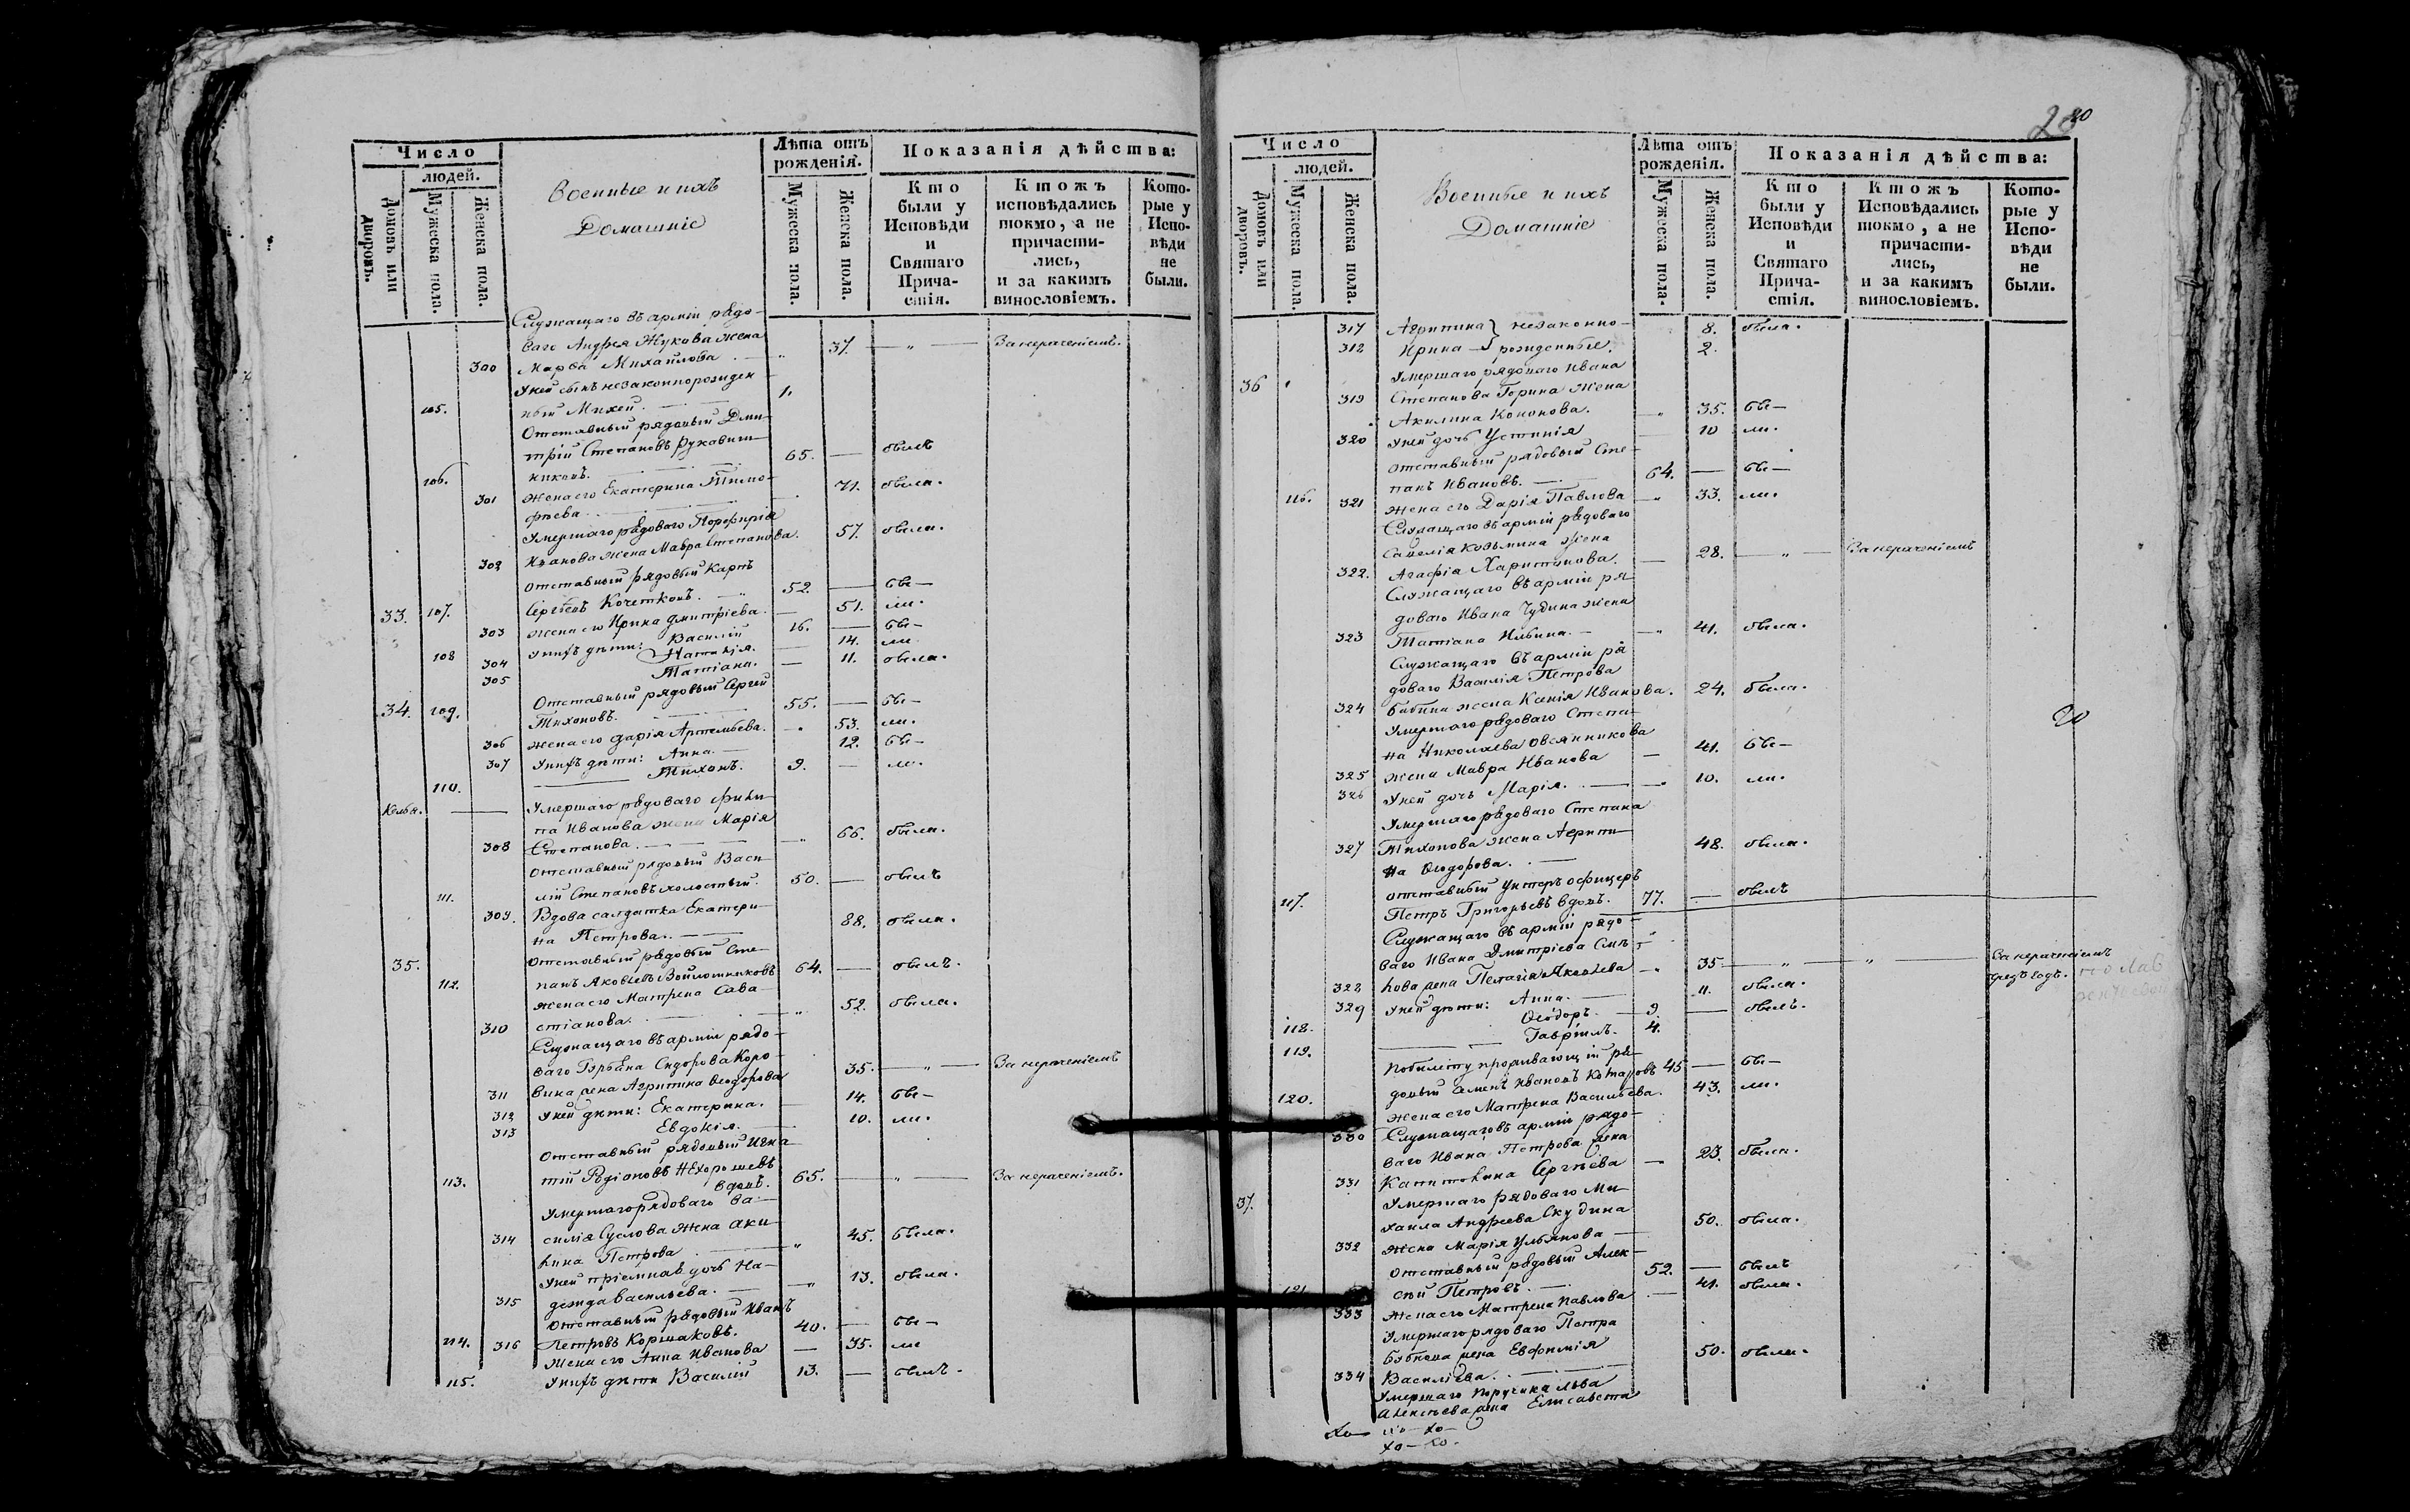 Число
людей.
Домовъ или дворовъ.
Мужеска пола.
Женска пола.
Военные и ихъ
Домашніе
Лѣта отъ
рожденія.
Мужеска пола.
Женска пола.
Показанія дѣйства:
Кто
были у
Исповѣди
и
Святаго
Прича-
стія.
Ктожъ
исповѣдались
токмо, а не
причасти-
лись,
и за какимъ
винословіемъ.
Кото-
рые у
Испо-
вѣди
не
были.
Служащаго въ арміи рядо-
ваго Андрея Жукова жена
300 Марѳа Михайлова. 37. За нераченіемъ.
У ней сынъ незаконнорожден
105. ный Михей. 1.
Отставный рядовый Дми-
трій Степановъ Рукавиш-
106. никовъ. 65. былъ
301 Жена его Екатерина Тимо-
фѣева. 71. была.
Умершаго рядоваго Порфирія
302 Иванова жена Мавра Степанова. 57. была.
Отставный рядовый Карпъ
33. 107. Сергѣевъ Кочетковъ. 52. бы-
303 жена его Ирина Дмитріева. 51. ли.
108 У нихъ дѣти: Василій 16. бы-
304 Наталія. 14. ли
305 Татіана. 11. была.
Отставный рядовый Сергей
34. 109. Тихоновъ. 55. бы-
306 жена его Дарія Артемьева. 53. ли.
307 У нихъ дѣти: Анна. 12. бы-
110. Тихонъ. 9. ли.
Келья. Умершаго рядоваго Фили-
па Иванова жена Марія
308 Степанова. 66. была.
Отставный рядовый Васи-
111. лій Степановъ холостый. 50. былъ
309. Вдова салдатка Екатери-
на Петрова. 88. была.
35. Отставный рядовый Сте-
112. панъ Яковлевъ Войлошниковъ 64. былъ.
жена его Матрена Сава-
310 стіанова. 52. была.
Служащаго въ арміи рядо-
ваго Сидорова Коро-
311 вина жена Агрипина Ѳеодорова 35. За нераченіемъ
312 У ней дѣти: Екатерина. 14. бы-
313 Евдокія. 10. ли.
Отставный рядовый Игна-
113. тій Родіоновъ Нехорошевъ
вдовъ. 65. За нераченіемъ.
Умершаго рядоваго Ва-
314 силія Суслова жена Аку-
лина Петрова 45. была.
У ней пріемная дочь На-
315 дежда Васильева. 13. была.
Отставный рядовый Иванъ
114. 316 Петровъ Коршаковъ. 40. бы-
жена его Анна Иванова 35. ли
115. У нихъ дѣти Василій 13. былъ.
Число
людей.
Домовъ или дворовъ.
Мужеска пола.
Женска пола.
Военные и ихъ
Домашніе
Лѣта отъ
рожденія.
Мужеска пола.
Женска пола.
Показанія дѣйства:
Кто
были у
Исповѣди
и
Святаго
Прича-
стія.
Ктожъ
Исповѣдались
токмо, а не
причасти-
лись,
и за какимъ
винословіемъ.
Кото-
рые у
Испо-
вѣди
не
были.
317 Агрипина незаконно- 8. была.
318 Ирина рожденные. 2.
36 Умершаго рядоваго Ивана
319 Степанова Горина жена
Акилина Кононова. 35. бы-
320 У ней дочь Устинія 10 ли.
Отставный рядовый Сте-
116. панъ Ивановъ. 64. бы-
321 жена его Дарія Павлова 33. ли.
Служащаго въ арміи рядоваго
Савелія Козьмина жена
322. Агафія Харитонова. 28. За нераченіемъ
Служащаго въ арміи ря-
доваго Ивана Чудина жена
323 Татіана Ильина. 41. была.
Служащаго въ арміи ря
доваго Василія Петрова
324 Бабина жена Ксенія Иванова. 24. была.
Умершаго рядоваго Степа-
на Николаева Овсянникова
325 жена Мавра Иванова 41. бы-
326 У ней дочь Марія. 10. ли.
20
Умершаго рядоваго Степана
327 Тихонова жена Агрипи-
на Ѳеодорова. 48. была.
Отставный унтеръ офицеръ
117. Петръ Григорьевъ вдовъ. 77. былъ
Служащаго въ арміи рядо-
ваго Ивана Дмитріева
328 жена Пелагія Яковлева 35 За нераченіемъ
329 У ней дѣти: Анна. 11. была.
118. Ѳеодоръ. 9. былъ.
119. Гавріилъ. 4.
По билету проживающій ря-
120. довый Семенъ Ивановъ Комаровъ 45 бы-
330 жена его Матрена Васильева. 43. ли.
Служащаго въ арміи рядо-
ваго Ивана Петрова жена
331 Капитолина Сергѣева 23. была.
37. Умершаго рядоваго Ми-
хаила Андреева Скудина
332 жена Марія Ульянова 50. была.
Отставный рядовый Алек-
121. сѣй Петровъ. 52. былъ
333 жена его Матрена Павлова 41. была.
Умершаго рядоваго Петра
жена Евфимія
334 Василіева. 50. была.
Умершаго Поручика Льва
Алексѣева жена Елисавета